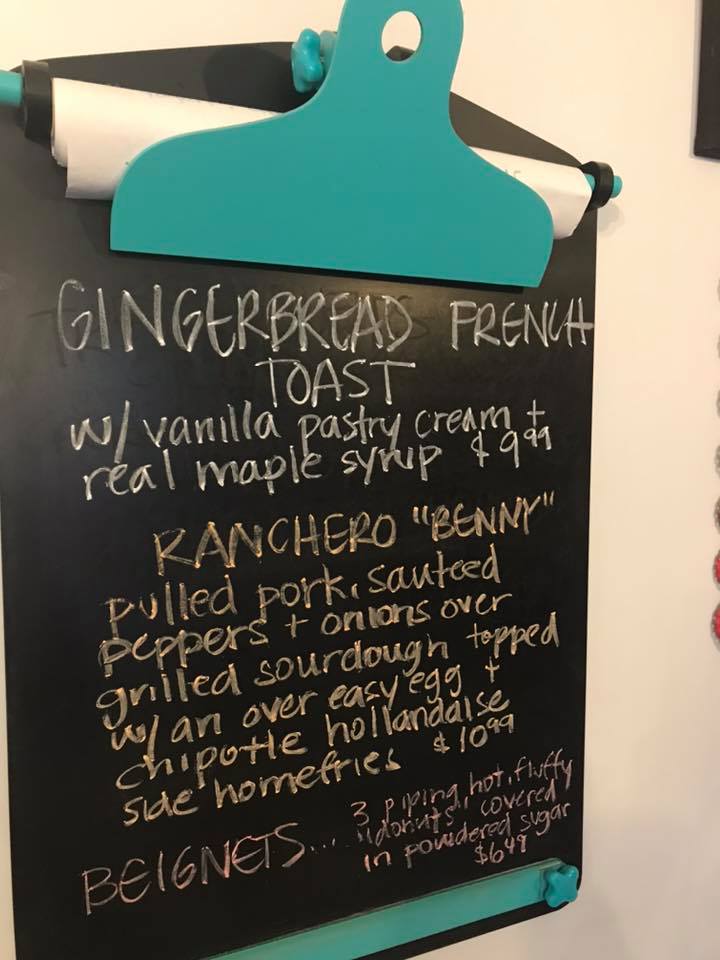 GINGERBREAD FRENCH
TOAST
w/ vanilla pastry cream +
real maple syrup $9.99
RANCHERO "BENNY"
pulled pork, sauteed
peppers + onions over
grilled sourdough topped
w/ an over easy egg +
chipotle hollandaise
side homefries $10.99
BEIGNETS... 3 piping hot, fluffy
"donuts" covered
in powdered sugar
$6.49